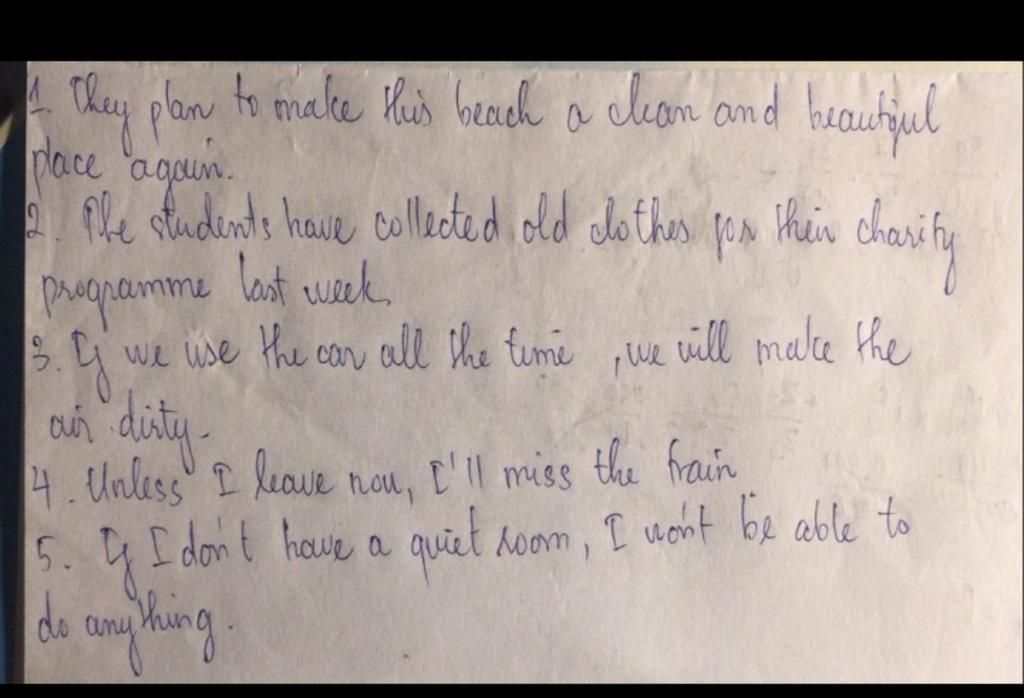 1. They plan to make this beach a clean and beautiful
place again.
2. The students have collected old clothes for their charity
programme last week.
3. If we use the car all the time , we will make the
air dirty.
4. Unless I leave now, I'll miss the train
5. If I don't have a quiet room, I won't be able to
do anything.